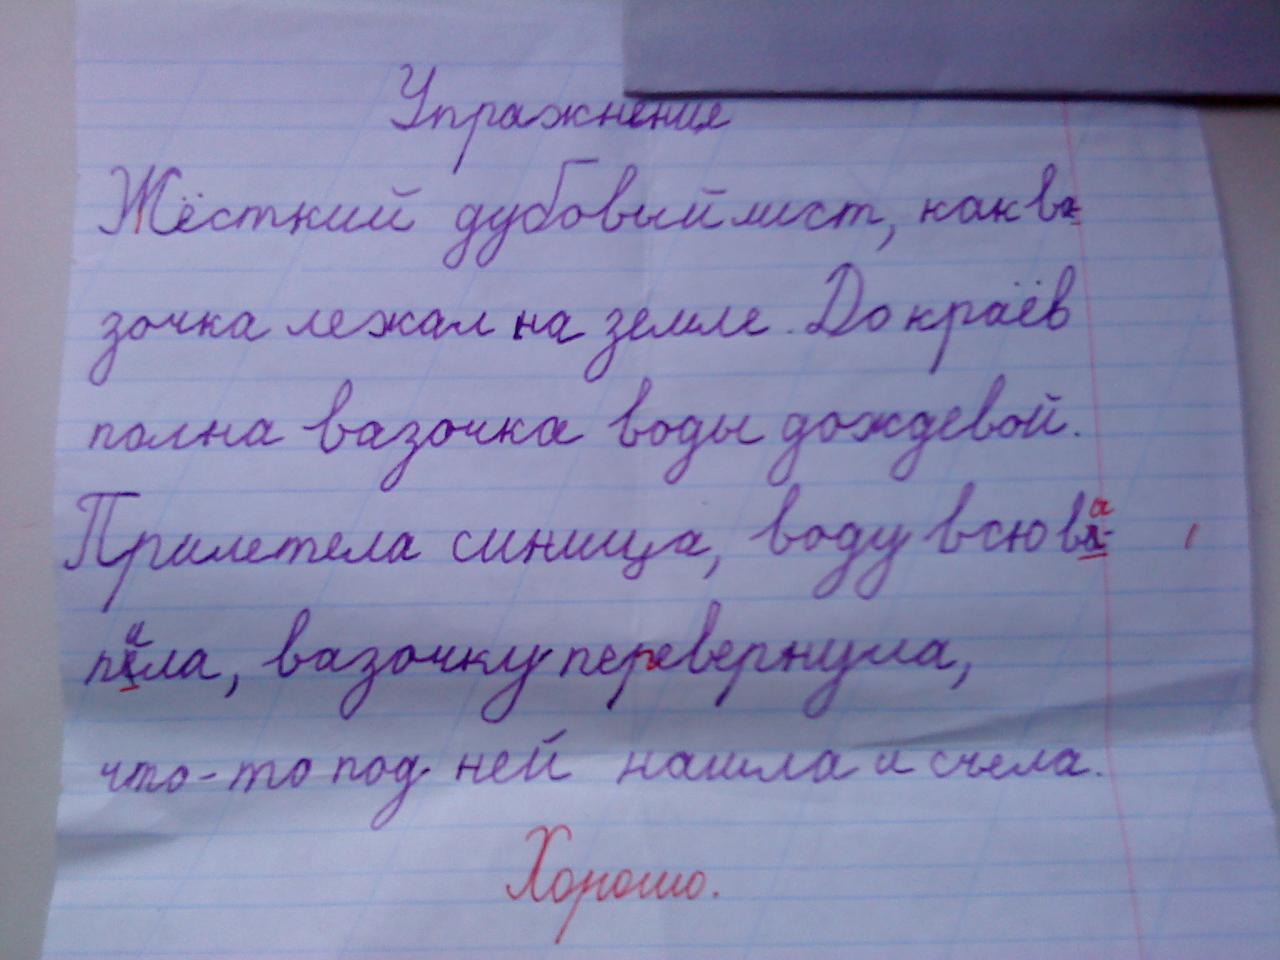 Упражнения
Жёсткий дубовый лист, как ва-
зочка лежал на земле. До краёв
полна вазочка воды дождевой.
Прилетела синица, воду всю вы-
пила, вазочку перевернула,
что-то под ней нашла и счела.
Хорошо.